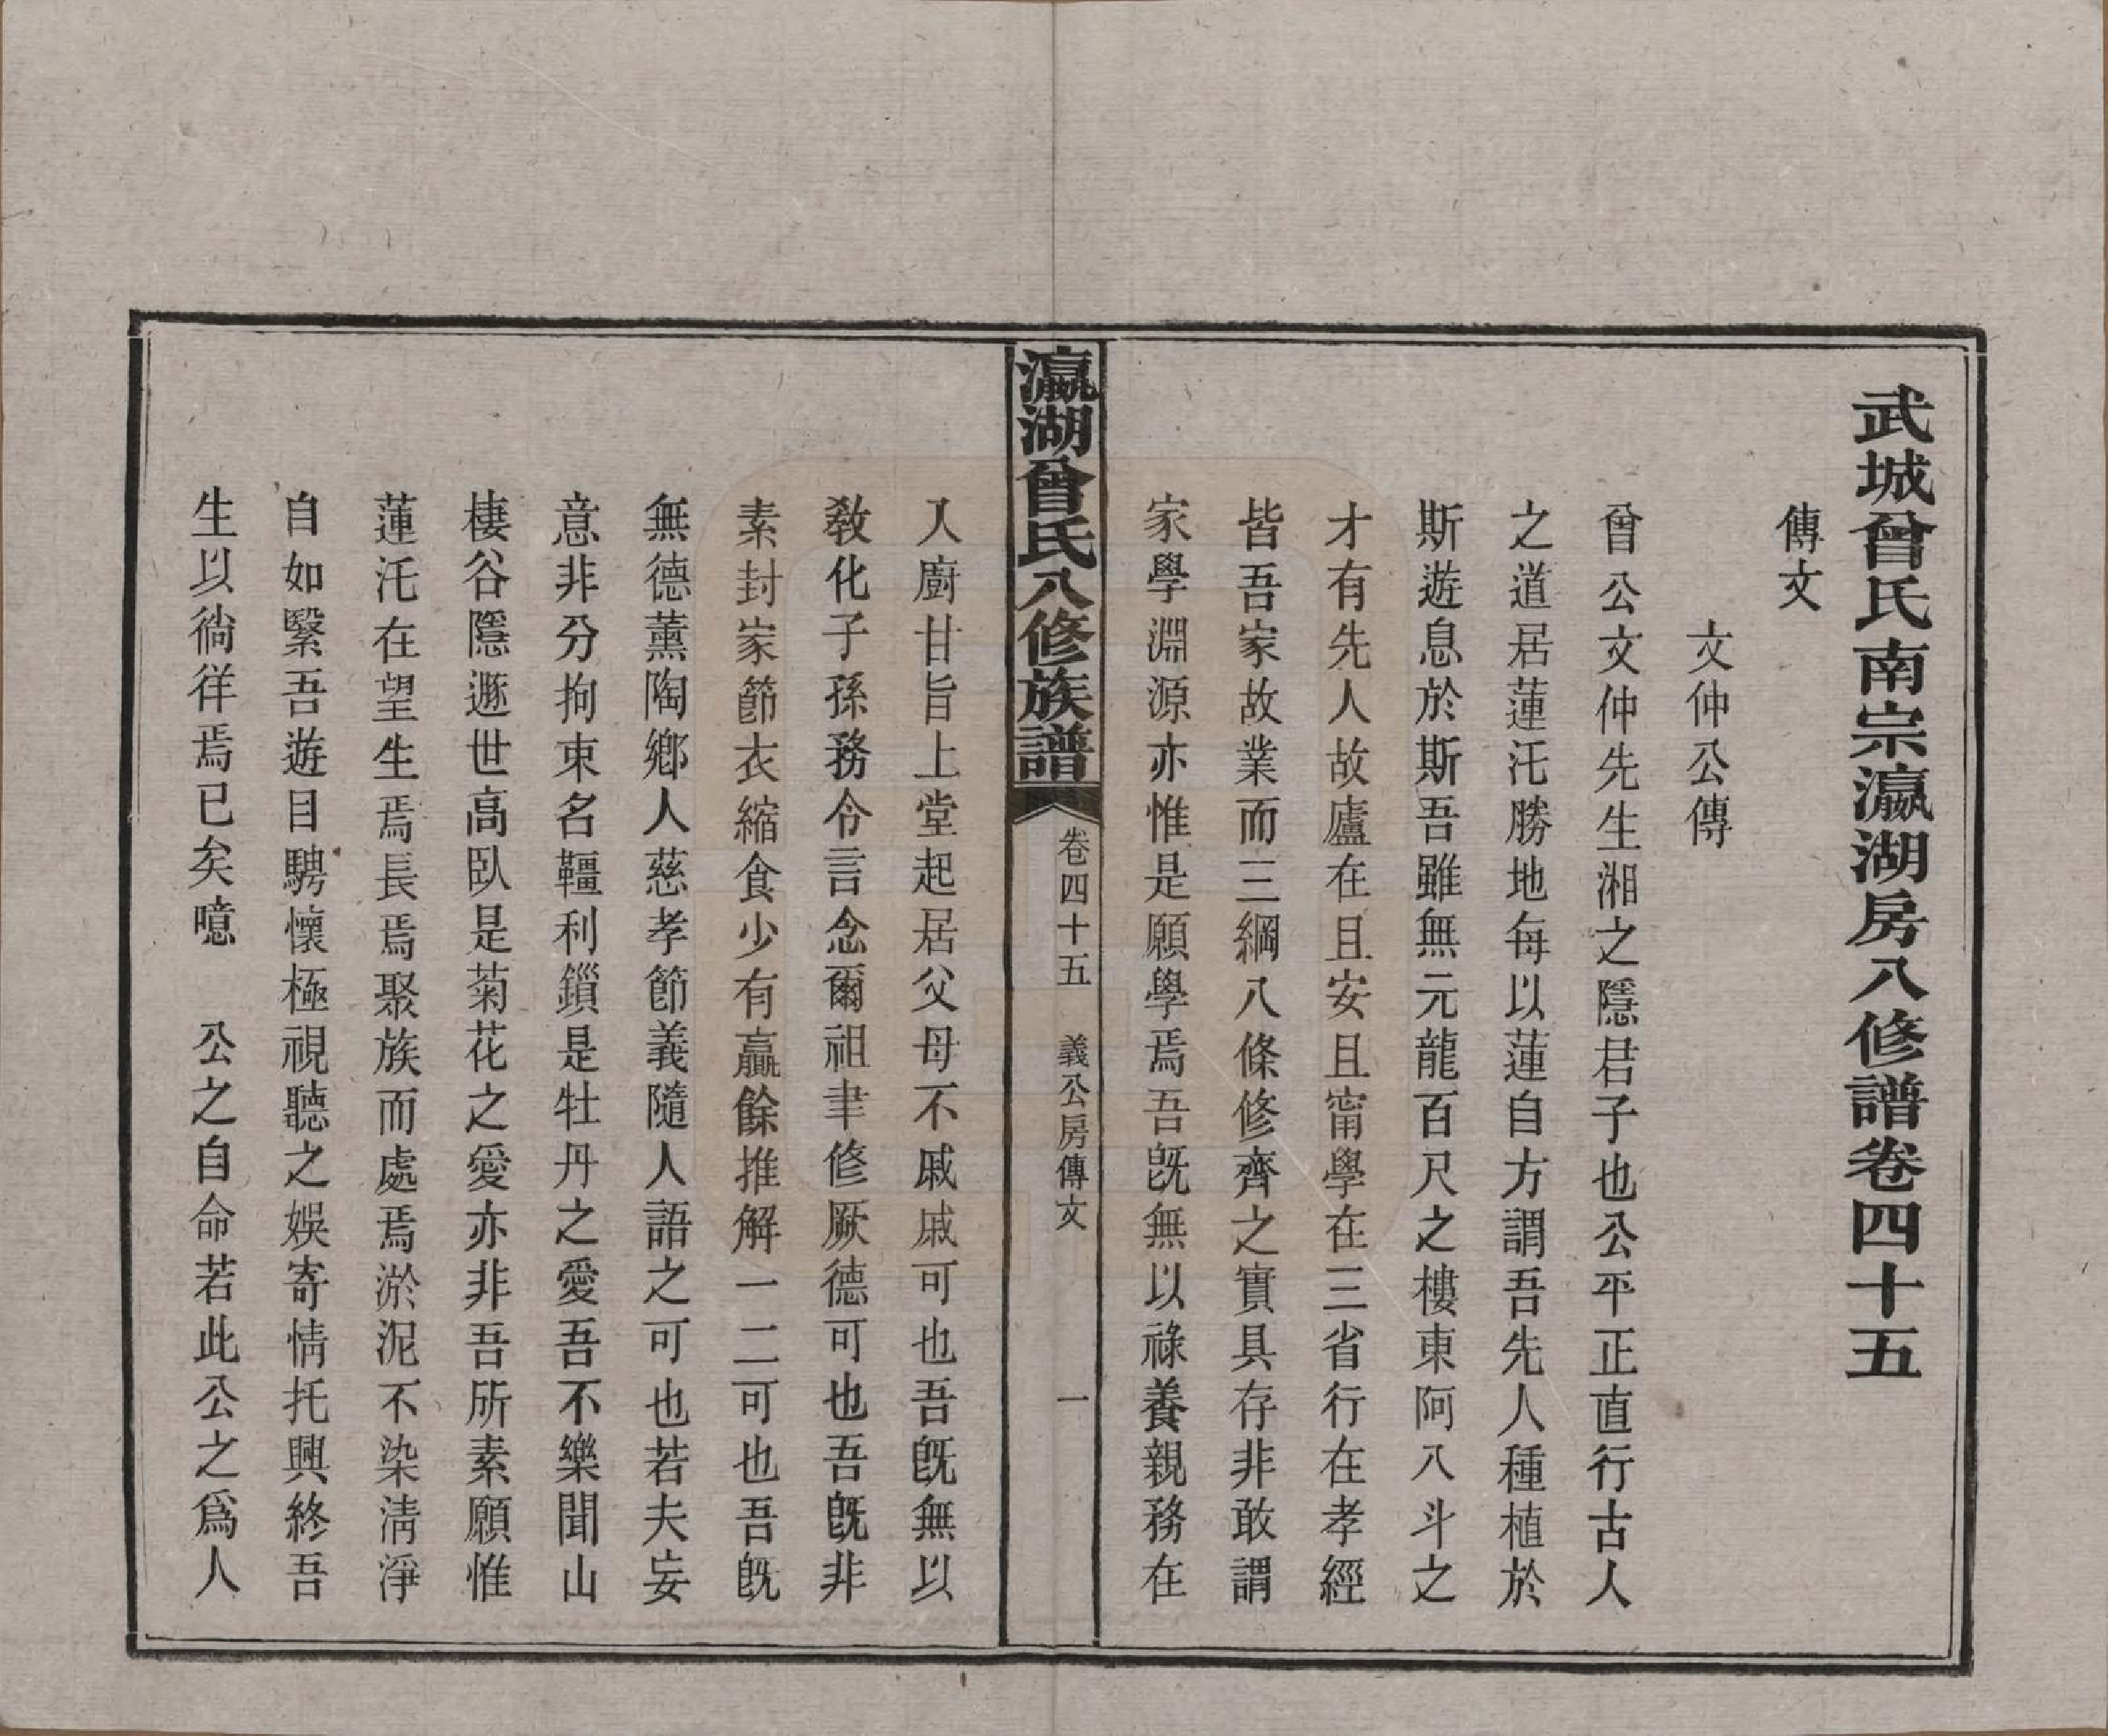 武城曾氏南宗瀛湖房八修譜卷四十五
傳文
文仲公傳
曾公文仲先生湘之隱君子也公平正直行古人
之道居蓮汑勝地每以蓮自方謂吾先人種植於
斯遊息於斯吾雖無元龍百尺之樓東阿八斗之
才有先人故廬在且安且甯學在三省行在孝經
皆吾家故業而三綱八條修齊之實具存非敢謂
家學淵源亦惟是願學焉吾旣無以祿養親務在
瀛湖曾氏八修族譜
卷四十五 義公房傳文
一
入廚甘旨上堂起居父母不戚戚可也吾旣無以
敎化子孫務令言念爾祖聿修厥德可也吾旣非
素封家節衣縮食少有贏餘推解一二可也吾旣
無德薰陶鄉人慈孝節義隨人語之可也若夫妄
意非分拘束名韁利鎖是牡丹之愛吾不樂聞山
棲谷隱遯世高臥是菊花之愛亦非吾所素願惟
蓮汑在望生焉長焉聚族而處焉淤泥不染淸淨
自如繄吾遊目騁懷極視聽之娛寄情托興終吾
生以徜徉焉已矣噫 公之自命若此公之爲人